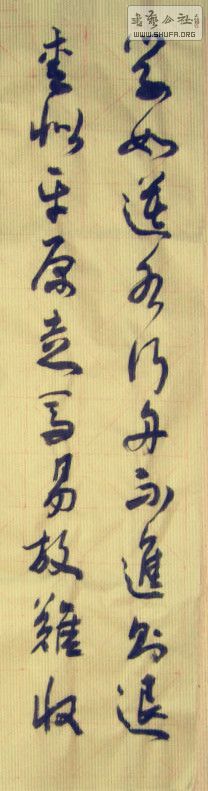 学如逆水行舟不進则退
似平原走馬易放難收
書藝公社
WWW.SHUFA.ORG